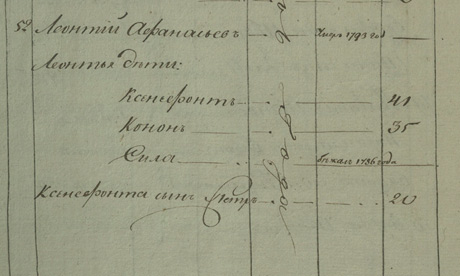 52 Леонтій Афанасьевъ умръ 1793 год
Леонтья дѣти:
Ксенефонтъ 41
Кононъ 35
Сила бѣжал 1786 года
Ксенефонта сынъ Петръ 20
года